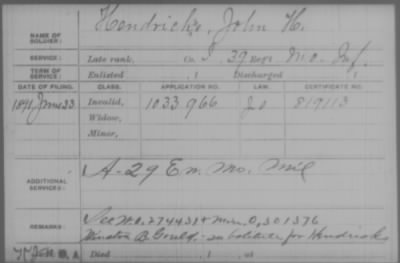 NAME OF SOLDIER: Hendricks, John H.
SERVICE: Late rank, Co. I, 39 Reg't Mo. Inf.
TERM OF SERVICE: Enlisted , 1 Discharged , 1
DATE OF FILING. CLASS. APPLICATION NO. LAW. CERTIFICATE NO.
1891, June 23 Invalid, 1033966 819113
Widow,
Minor,
ADDITIONAL SERVICES: A-29 Em. Mo. Mil
REMARKS: See W.O. 774431 Min. O, 301376
Winston B. Gould - substitute for Hendricks
Died , 1 , at